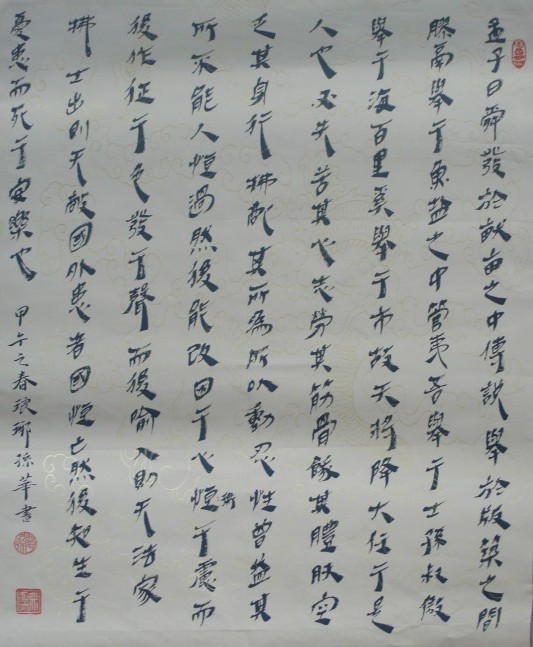 孟子曰舜發於畎亩之中傅說舉於版築之間
膠鬲舉于魚盐之中管夷吾舉于士孫叔敖
舉于海百里奚舉于市故天將降大任于是
人也必先苦其心志勞其筋骨餓其體肤空
乏其身行拂亂其所為所以動忍性曾益其
所不能人恒過然後能改困于心恒衡于慮而
後作征于色發于聲而後喻入則无法家
拂士出則无敵國外患者國恒亡然後知生于
憂患而死于安樂也
甲午之春琅琊孫華書